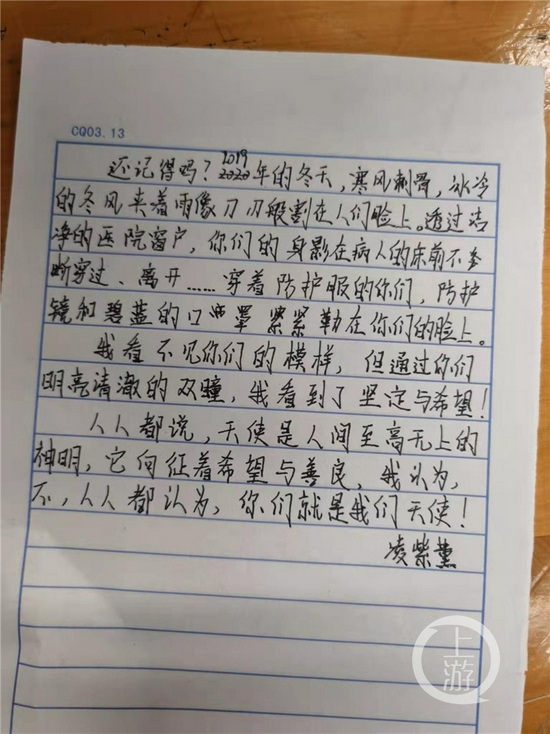 CQ03.13
还记得吗?2019年的冬天,寒风刺骨,冰冷
的冬风夹着雨像刀刃般割在人们脸上。透过洁
净的医院窗户,你们的身影在病人的床前不
断穿过、离开……穿着防护服的你们,防护
镜和碧蓝的口罩紧紧勒在你们的脸上。
我看不见你们的模样,但通过你们
明亮清澈的双瞳,我看到了坚定与希望!
人人都说,天使是人间至高无上的
神明,它向征着希望与善良,我认为,
不,人人都认为,你们就是我们天使!
凌紫薰
上游